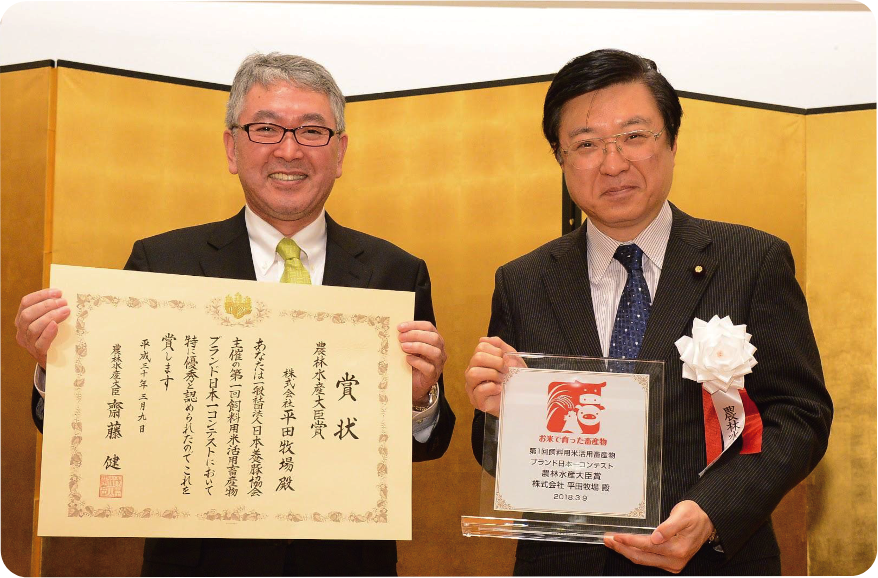 賞状
農林水産大臣賞
株式会社 平田牧場 殿
あなたは一般社団法人日本養豚協会
主催の第一回飼料用米活用畜産物
ブランド日本一コンテストにおいて
特に優秀と認められたのでこれを
賞します
平成三十年三月九日
農林水産大臣 齋藤 健
お米で育った畜産物
第1回飼料用米活用畜産物
ブランド日本一コンテスト
農林水産大臣賞
株式会社 平田牧場 殿
2018.3.9
農林